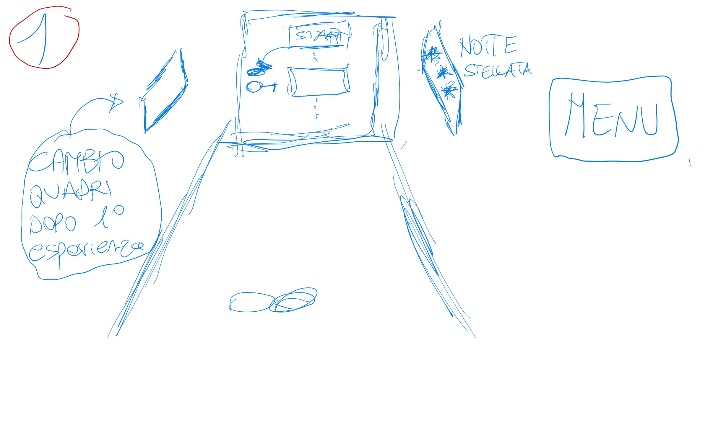 1
START
NOTTE
STELLATA
MENU
CAMBIO
QUADRI
DOPO 1°
esperienza